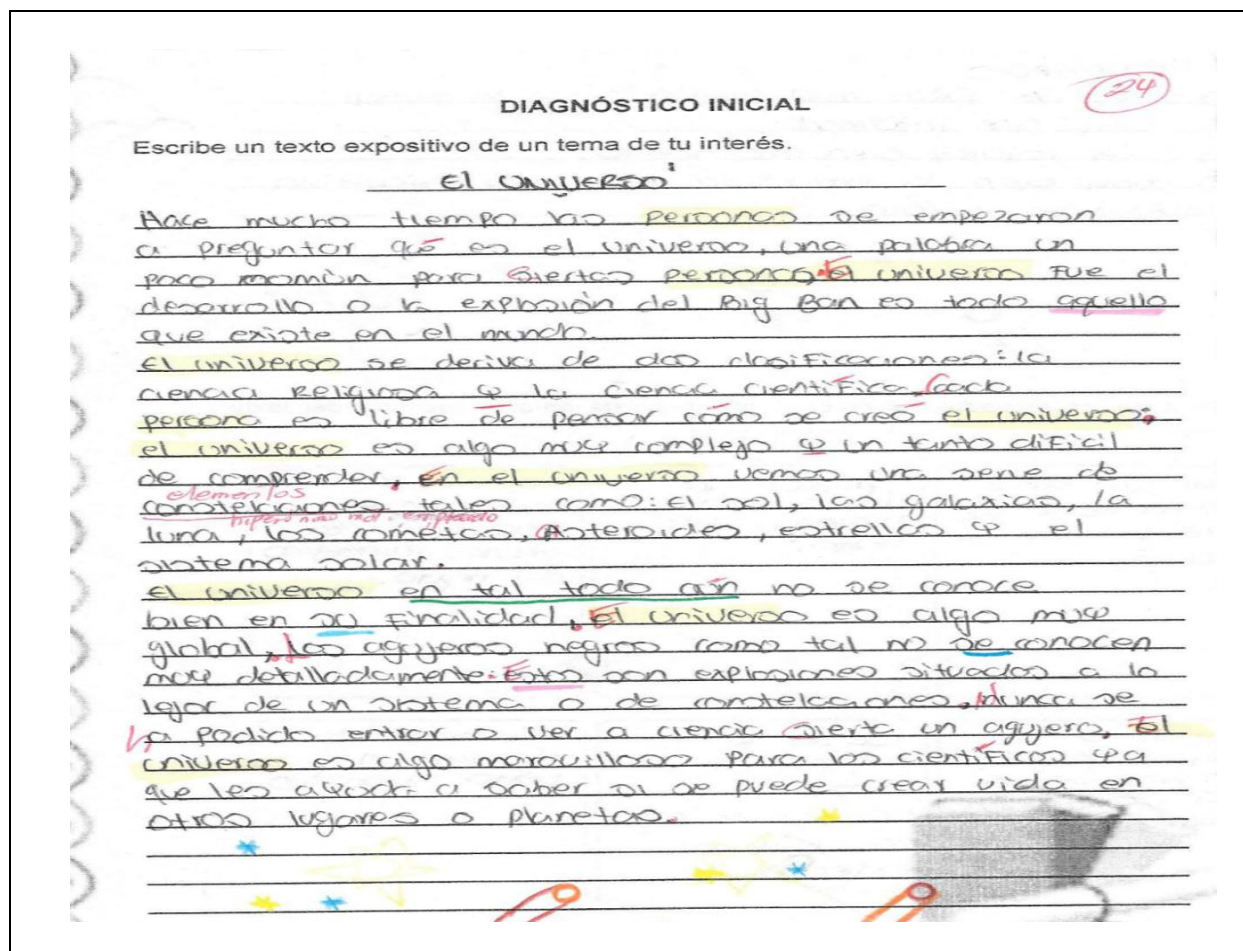 24
DIAGNÓSTICO INICIAL
Escribe un texto expositivo de un tema de tu interés.
El UNIVERSO
Hace mucho tiempo las personas se empezaron
a preguntar qué es el universo, una palabra un
poco común para siertas personas. El universo fue el
desarrollo o la explosión del Big Ban es todo aquello
que existe en el mundo.
El universo se deriva de dos clasificaciones: la
ciencia Religiosa y la ciencia científica. Cada
persona es libre de pensar cómo se creó el universo;
el universo es algo muy complejo y un tanto dificil
de comprender. En el universo vemos una serie de
elementos
constelaciones tales como: El sol, las galaxias, la
hiperónimo mal empleado
luna, los cometas, Asteroides, estrellas y el
sistema solar.
El universo en tal todo aún no se conoce
bien en su Finalidad. El universo es algo muy
global, los agujeros negros como tal no se conocen
muy detalladamente. Estos son explosiones situados a lo
lejos de un sistema o de constelaciones. Nunca se
ha podido entrar o ver a ciencia sierta un agujero. El
universo es algo maravilloso para los científicos ya
que les ayuda a saber si se puede crear vida en
otros lugares o planetas.